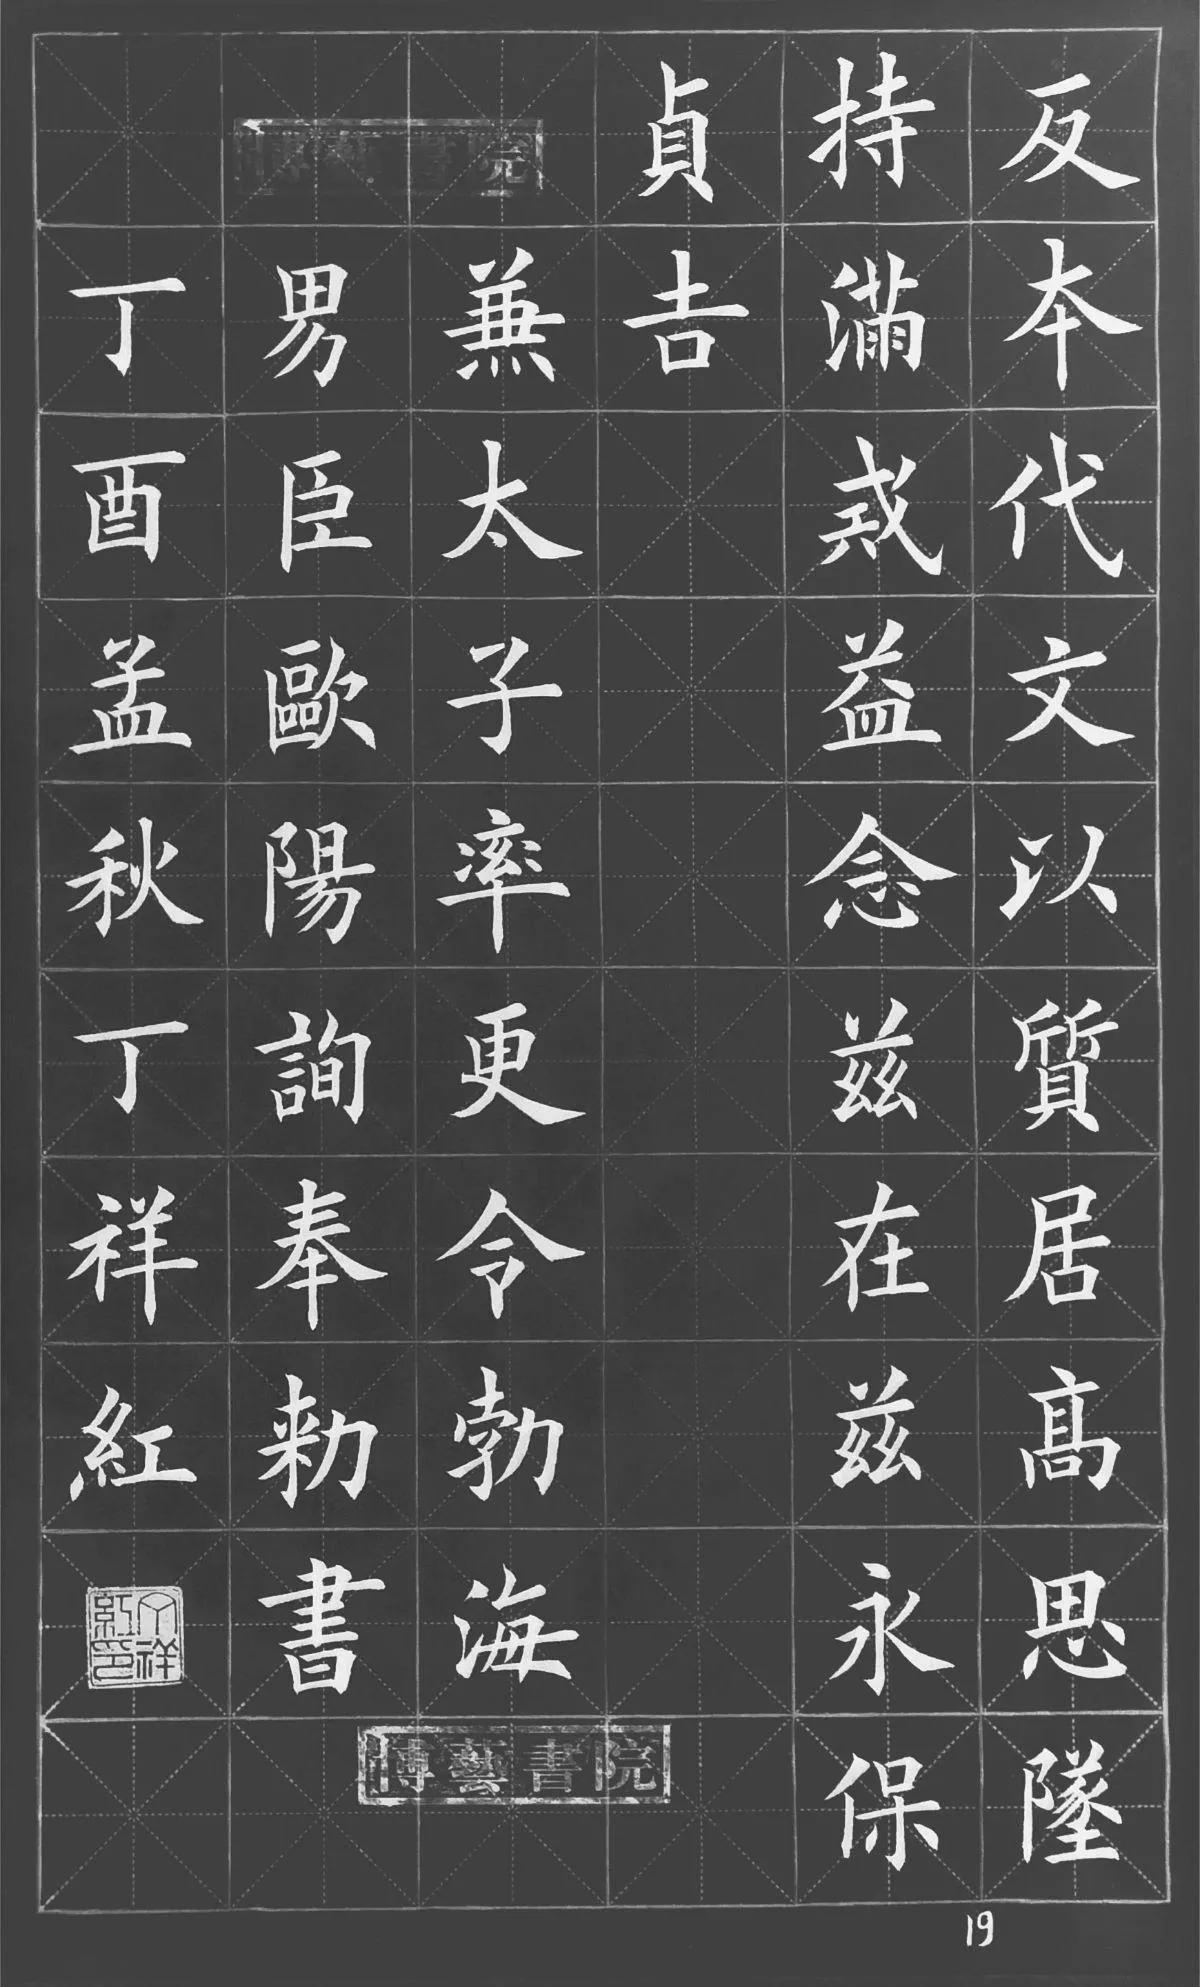 反本代文以質居高思墜
持滿戒益念茲在茲永保
貞吉
兼太子率更令勃海
男臣歐陽詢奉勅書
丁酉孟秋丁祥紅
丁祥紅印
博藝書院
博藝書院
19